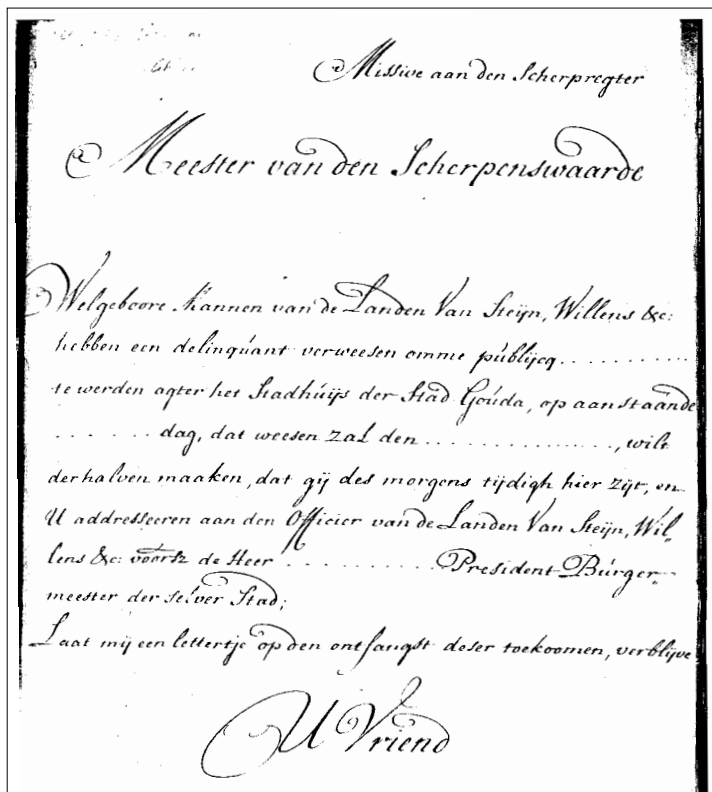 Missive aan den Scherpregter
Meester van den Scherpenswaarde
Welgeboore Mannen van de Landen Van Steijn, Willens &c:
hebben een delinquant verweesen omme publijcq . . . . . . . . . .
te werden agter het Stadhuijs der Stad Gouda, op aanstaande
. . . . . . dag, dat weesen zal den . . . . . . . . . . . . . . , wilt
derhalven maaken, dat gij des morgens tijdigh hier zijt, en
U addresseeren aan den Officier van de Landen Van Steijn, Wil„
lens &c: de Heer . . . . . . . . . . . President-Burger„
meester der selver Stad;
Laat mij een lettertje op den ontfangst deser toekoomen, verblijve
U Vriend